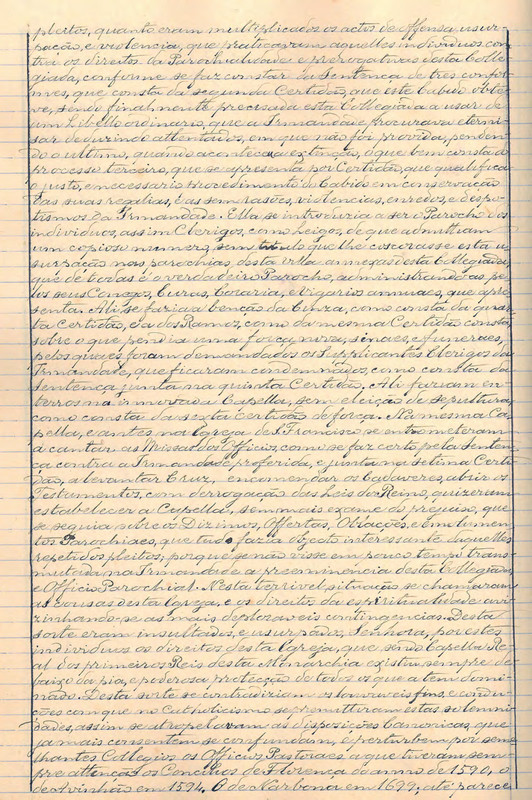 pleitos, quanto eram multiplicados os actos de offensa, usur-
pação, e violencia, que praticavam aquelles individuos con-
tra os direitos da Parochialidade e prerogativas desta Colle-
giada, conforme se faz constar da Sentença de tres confor-
mes, que consta da segunda Certidão, que este Cabido obte-
ve, sendo finalmente precisada esta Collegiada a usar de
um Libello ordinario, que a Irmandade procurava etermi-
sar deduzindo attentados, em que não foi provida, penden-
do o ultimo, quando aconteceu a extinção, o que bem consta do
processo terceiro, que se apresenta por Certidão, que qualifica
o justo, e necessario procedimento do Cabido em conservação
das suas regalias, e as sem rasões, violencias, enredos, e despo-
tismos da Irmandade. Ella se introduzia a ser o Parocho dos
individuos, assim Clerigos, como Leigos, de que admittiam
um copioso numero, sem titulo que lhe coscorasse esta u-
surpação nas parochias desta villa annexas desta Collegiada,
que de todas é o verdadeiro Parocho, administrando as, pe-
los seus Conegos, Curas, Coraria, e Vigarios annuaes, que apre-
senta. Ali se fazia a benção da Cinza, como consta da quar-
ta Certidão, e a dos Ramos, como da mesma Certidão consta,
sobre o que pendia uma força nova, sinaes, e funeraes,
pelos quaes foram demandados os Supplicantes Clerigos da
Irmandade, que ficaram condemnados, como consta da
Sentença junta na quinta Certidão. Ali faziam en-
terros na innovada Capella, sem eleição de sepultura,
como consta da sexta certidão de força. Na mesma Ca-
pella, e antes na Igreja de S. Francisco se entrometeram
a cantar as Missas dos Officios, como se faz certo pela Senten-
ça contra a Irmandade proferida, e junta na Setima Certi-
dão, a levantar Cruz, encomendar os Cadaveres, abrir os
Testamentos, com derrogação das Leis do Reino, quizeram
estabelecer a Capella, sem mais exame do prejuiso, que
se seguia sobre os Dizimos, Offertas, Obrações, e emolumen-
tos Parochiaes, que tudo fazia objecto interessante daquelles
repetidos pleitos; porque se não visse em pouco tempo trans-
mutada, na Irmandade a preeminencia desta Collegiada,
e Officio Parochial. Nesta terrivel situação se chamaram
as cousas desta Igreja, e os direitos da espiritualidade avi-
zinhando-se as mais deploraveis contingencias. Desta
sorte eram insultados, e usurpados, Senhora, por estes
individuos os direitos desta Igreja, que sendo Capella Re-
al dos primeiros Reis desta Monarchia existiu sempre de-
baixo da pia, e poderosa protecção de todos os que a tem domi-
nado. Desta sorte se contradiziam os louvaveis fins, e condi-
ções com que no Catholicismo se premittiram estas solemni-
dades, assim se atropelavam as disposições Canonicas, que
ja mais consentem se confundam, e perturbem por seme-
lhantes Collegios os Officios Pastoraes a que tiveram sem-
pre attenção os Concilios de Florença do anno de 1590, o
de Avinhão em 1594. O de Narbona em 1699; até parece